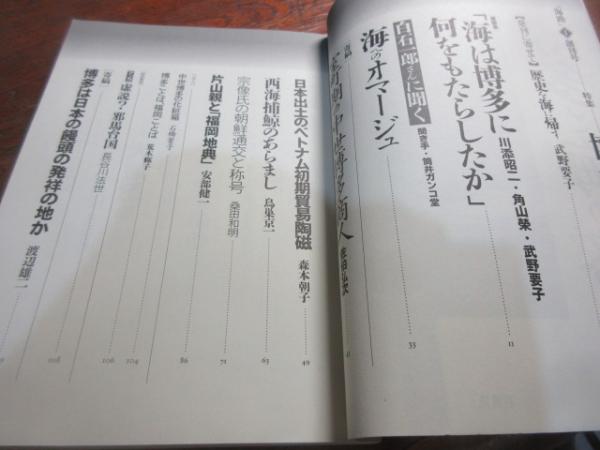 「海は博多に
何をもたらしたか」
川添昭二・角山榮・武野要子
11
歴史、海に帰す 武野要子
特集
白石一郎さんに聞く
聞き手・筒井ガンコ堂
海へのオマージュ
33
中世博多商人
佐伯弘次
日本出土のベトナム初期貿易陶磁
森本朝子
49
西海捕鯨のあらまし
鳥巣京一
63
宗像氏の朝鮮通交と称号
桑田和明
71
片山親と「福岡地典」
安部健一
86
中世博多の化粧箱
博多ことば、福岡ことば
104
虚説?・邪馬台国
長谷川法世
106
寄稿
博多は日本の饅頭の発祥の地か
渡辺雄二
108